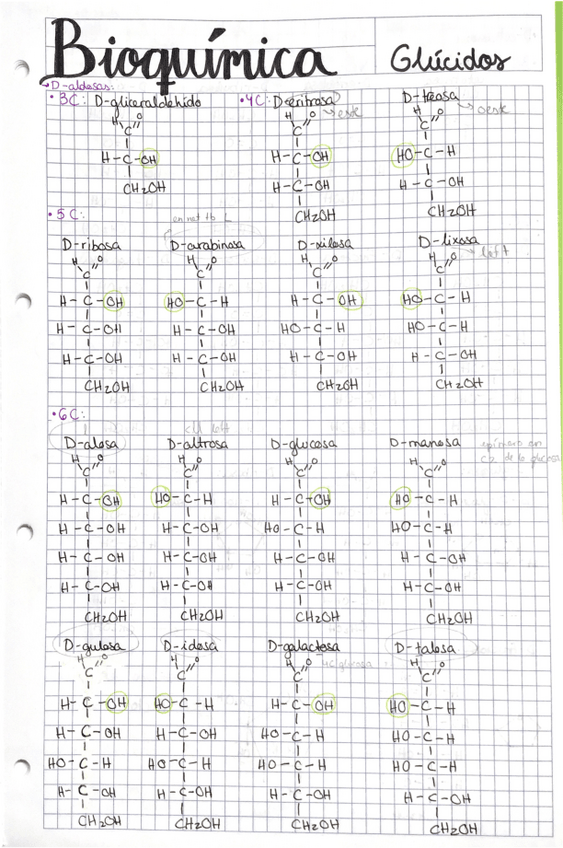 Bioquímica
Glúcidos
D-aldosas:
• 3C: D-gliceraldehido
H O
C
H-C-OH
CH2OH
• 4C: D-eritrosa
este
H O
C
H-C-OH
H-C-OH
CH2OH
D-treosa
oeste
H O
C
HO-C-H
H-C-OH
CH2OH
• 5C:
D-ribosa
H O
C
H-C-OH
H-C-OH
H-C-OH
CH2OH
D-arabinosa
H O
C
HO-C-H
H-C-OH
H-C-OH
CH2OH
D-xilosa
H O
C
H-C-OH
HO-C-H
H-C-OH
CH2OH
D-lixosa
left
H O
C
HO-C-H
HO-C-H
H-C-OH
CH2OH
• 6C:
D-alosa
H O
C
H-C-OH
H-C-OH
H-C-OH
H-C-OH
CH2OH
D-altrosa
H O
C
HO-C-H
H-C-OH
H-C-OH
H-C-OH
CH2OH
D-glucosa
H O
C
H-C-OH
HO-C-H
H-C-OH
H-C-OH
CH2OH
D-manosa
epímero en
C2 de la glucosa
H O
C
HO-C-H
HO-C-H
H-C-OH
H-C-OH
CH2OH
D-gulosa
H O
C
H-C-OH
H-C-OH
HO-C-H
H-C-OH
CH2OH
D-idosa
H O
C
HO-C-H
H-C-OH
HO-C-H
H-C-OH
CH2OH
D-galactosa
4C glucosa
H O
C
H-C-OH
HO-C-H
HO-C-H
H-C-OH
CH2OH
D-talosa
H O
C
HO-C-H
HO-C-H
HO-C-H
H-C-OH
CH2OH